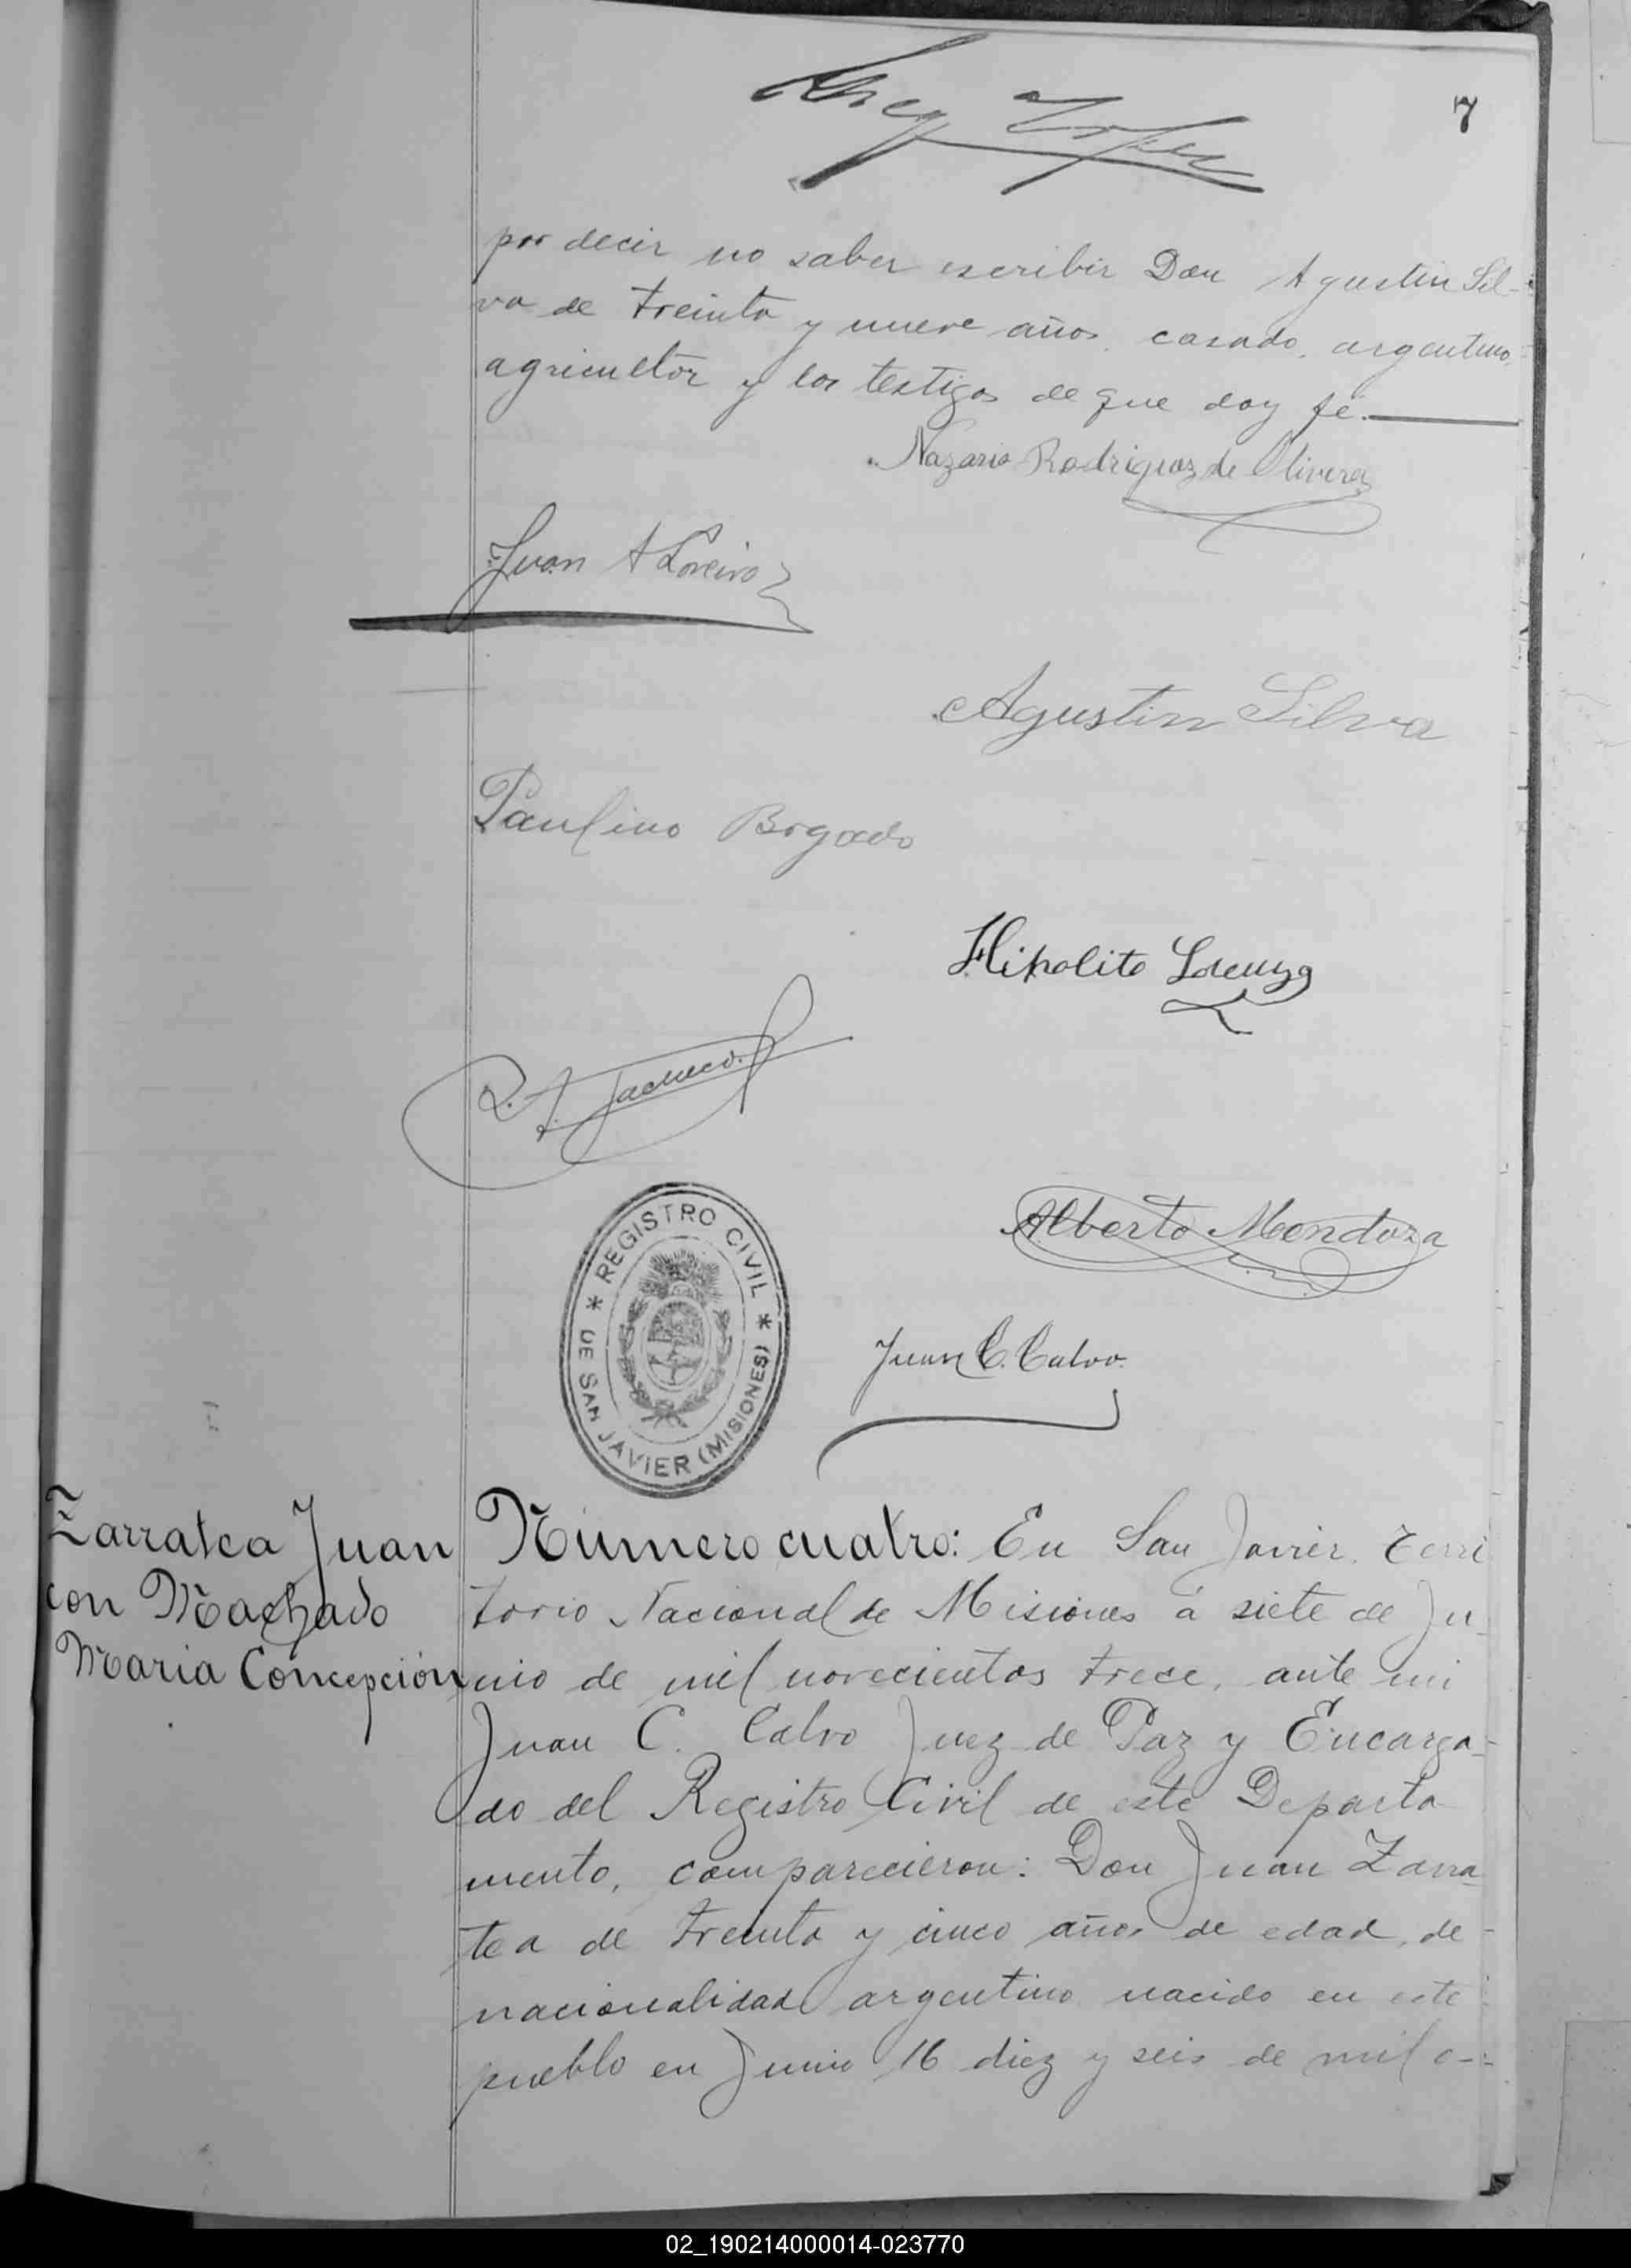 7
por decir no saber escribir Don Agustin Sil-
va de treinta y nueve años, casado, argentino,
agricultor y los testigos de que doy fé.
Nazario Rodriguez de Olivera
Juan A Loreiro
Agustin Silva
Paulino Bogado
Hipolito Lorenzo
R. A. Pacheco
Alberto Mendoza
REGISTRO CIVIL
DE SAN JAVIER (MISIONES)
Juan C. Calvo.
Zarratea Juan
con Machado
Maria Concepción
Número cuatro: En San Javier, Terri
torio Nacional de Misiones á siete de Ju-
nio de mil novecientos trece, ante mi
Juan C. Calvo Juez de Paz y Encarga-
do del Registro Civil de este Departa
mento, comparecieron: Don Juan Zarra-
tea de treinta y cinco años de edad, de
nacionalidad argentino nacido en este
pueblo en Junio 16 diez y seis de mil o-
02_190214000014-023770